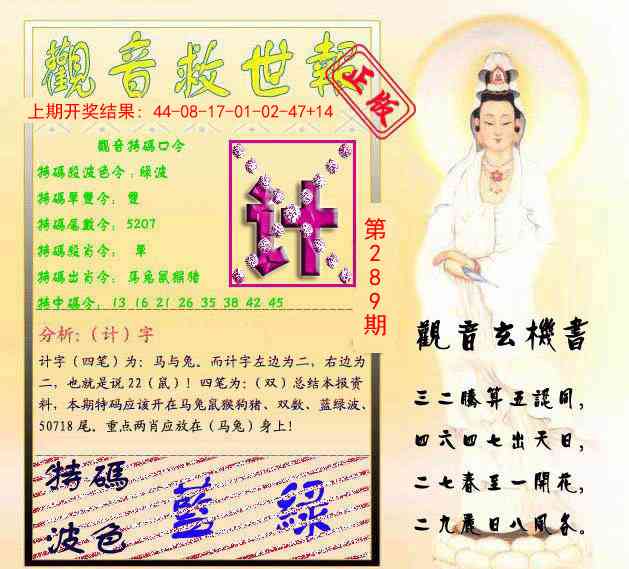 觀音救世報
正版
上期开奖结果：44-08-17-01-02-47+14
觀音特碼口令
特碼段波色令：綠波
特碼單雙令： 雙
特碼尾數令： 5207
特碼段肖令： 單
特碼出肖令： 馬兔鼠猴猪
特中碼令： 13 16 21 26 35 38 42 45
计
第289期
分析：（计）字
计字（四笔）为：马与兔。而计字左边为二，右边为
二，也就是说22（鼠）！四笔为：（双）总结本报资
料，本期特码应该开在马兔鼠猴狗猪、双数、蓝绿波、
50718 尾。重点两肖应放在（马兔）身上！
特碼
波色
藍 綠
觀音玄機書
三二勝算五認同，
四六四七出天日，
二七春至一開花，
二九晨日八風冬。